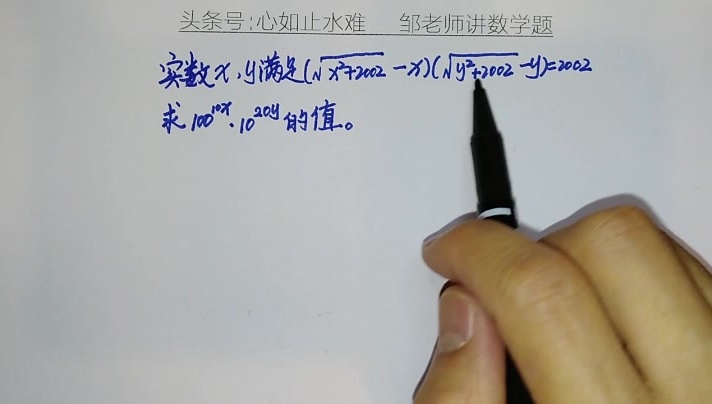 头条号:心如止水难 邹老师讲数学题
实数x、y满足(√x²+2002 -x)(√y²+2002 -y)=2002
求100^10x·10^20y的值。